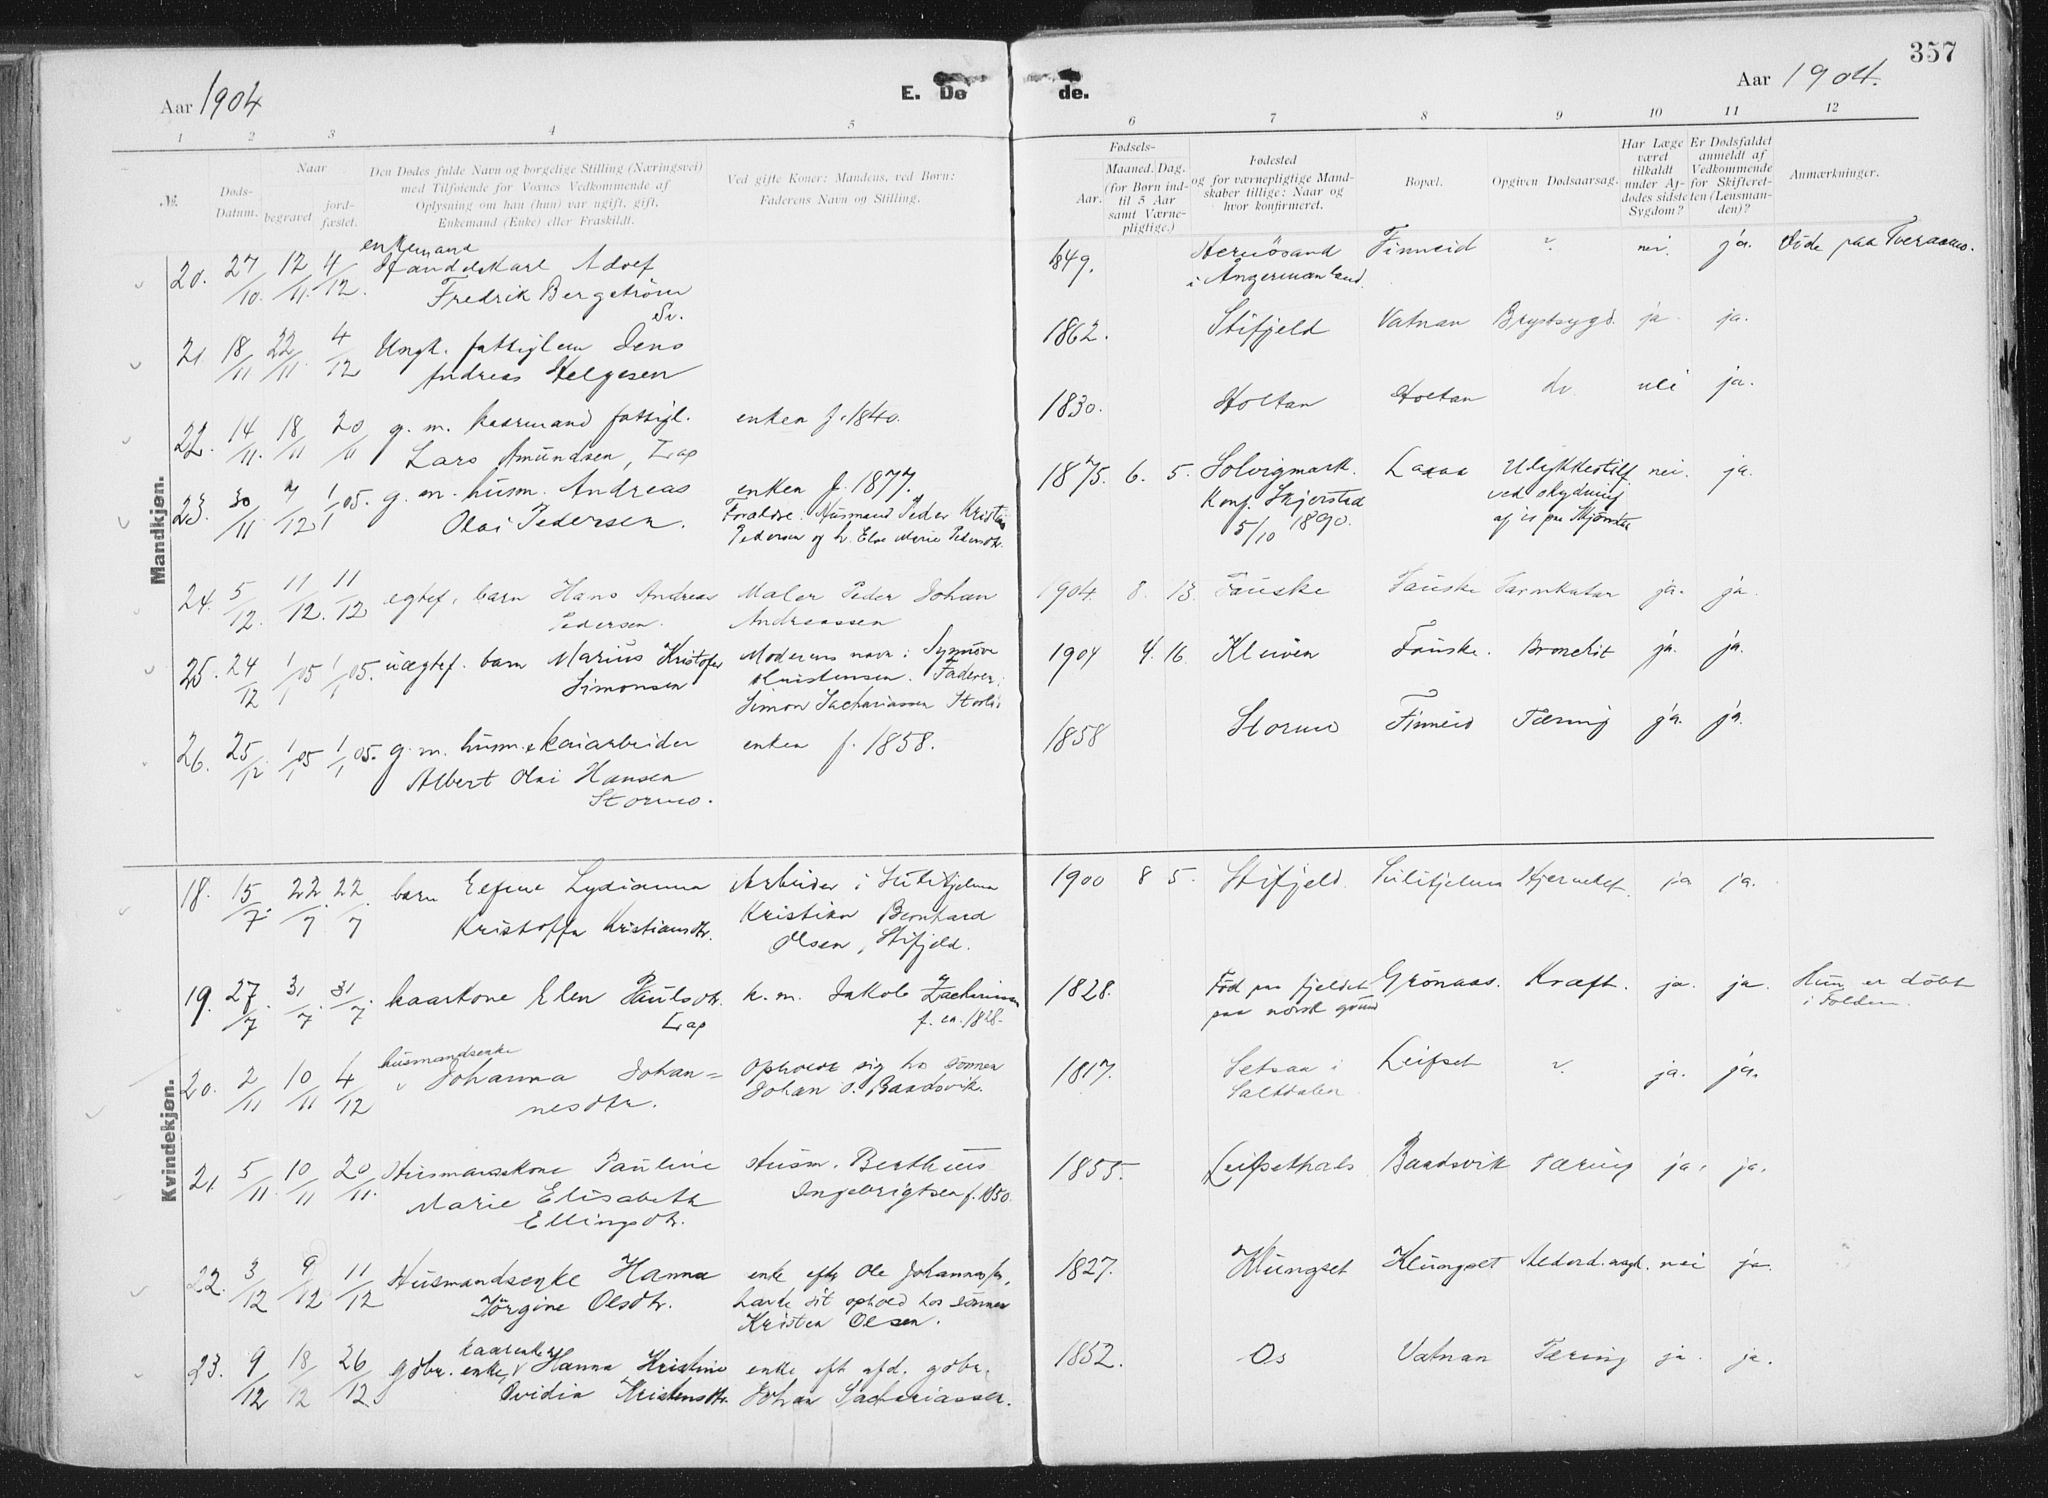 357
Aar 1904
E. Dø de.
Aar 1904.
1 2 3 4 5 6 7 8 9 10 11 12
№.
Døds-Datum.
Naar
begravet
jord-fæstet.
Den Dødes fulde Navn og borgelige Stilling (Næringsvei)
med Tilføiende for Voxnes Vedkommende af
Oplysning om han (hun) var ugift, gift,
Enkemand (Enke) eller Fraskildt.
Ved gifte Koner: Mandens, ved Børn:
Faderens Navn og Stilling.
Fødsels-
Aar. Maaned. Dag.
(for Børn ind-
til 5 Aar
samt Værne-
pligtige.)
Fødested
og for værnepligtige Mand-
skaber tillige: Naar og
hvor konfirmeret.
Bopæl.
Opgiven Dødsaarsag.
Har Læge
været
tilkaldt
under Af-
dødes sidste
Sygdom?
Er Dødsfaldet
anmeldt af
Vedkommende
for Skifteret-
ten (Lensman-
den)?
Anmærkninger.
Mandkjøn.
enkemand
20. 27/10. 12/11. 4/12. Handelskarl Adolf 1849. Hernösand Finneid ? nei. ja. Døde paa Tveraamo.
Fredrik Bergström i Ångermanland.
Sv.
21 18/11 22/11. 4/12 Ungk. fattiglem Jens 1862. Stifjeld Vatnan Brystsygd. ja. ja.
Andreas Helgesen
22. 14/11. 18/11 20/11 g. m. kaarmand fattigl. enken f. 1840. 1830. Holtan Holtan do nei ja.
Lars Amundsen, Lap
23. 30/11. 7/12 1/1 05. g. m. husm. Andreas enken f. 1877. 1875. 6. 5. Solvigmark. Ulykkestilf nei. ja.
Olai Pedersen. Forældre: Husmand Peder Kristian Konf. Skjerstad ved skydning
Pedersen og h. Else Marie Pedersdtr. 5/10 1890. af is paa
24. 5/12. 11/12. 11/12 egtef. barn Hans Andreas Maler Peder Johan 1904. 8. 13. Fauske Fauske Tarmkatar ja. ja.
Pedersen. Andreassen
25. 24/12 1/1 05 1/1 05. uægtef. barn Marius Kristofer Moderens navn: Synnøve 1904 4. 16. Kleiven Fauske. Bronchit ja. ja.
Simonsen Kristensen. Faderen:
Simon Zachariassen
26. 25/12. 1/1 05 1/1 05. g. m. husm. & kaiarbeider enken f. 1858. 1858 Stormo Finneid Tæring ja. ja.
Albert Olai Hansen
Stormo.
Kvindekjøn.
18. 15/7. 22/7. 22/7. barn Elfine Lydianna Arbeider i Sulitjelma 1900 8 5. Stifjeld. Sulitjelma Hjernebet. ja ja.
Kristoffa Kristiansdtr. Kristian Bernhard
Olsen, Stifjeld.
19. 27/7. 31/7. 31/7. kaarkone Elen Paulsdtr. k. m. Jakob Zachariassen 1828. Fød paa fjeldet Grønaas. Kræft. ja. ja. Hun er døbt
Lap f. ca. 1828. paa norsk grund i Folden.
husmandsenke
20. 2/11 10/11 4/12 Johanna Johan= Opholdt sig hos sønnen 1817. Setsaa i Leifset ? ja. ja.
nesdtr. Johan O. Baadsvik. Saltdalen
21. 5/11. 10/11 20/11. Husmandskone Pauline Husm. Bertheus 1855. Leifsethals Baadsvik Tæring ja. ja.
Marie Elisabeth Ingebrigtsen f. 1850.
Ellingsdtr.
22. 3/12 9/12 11/12 Husmandsenke Hanna enke efter Ole 1827. Klungset Klungset Alderd. nei ja.
Jörgine Olsdtr. havde sit ophold hos sønnen
Kristen Olsen.
kaarenke
23. 9/12 18/12 26/12. gdbr. enke, Hanna Kristine enke eft. afd. gdbr. 1852. Os Vatnan Tæring ja. ja.
Ovidia Kristensdtr. Johan Sachariassen.